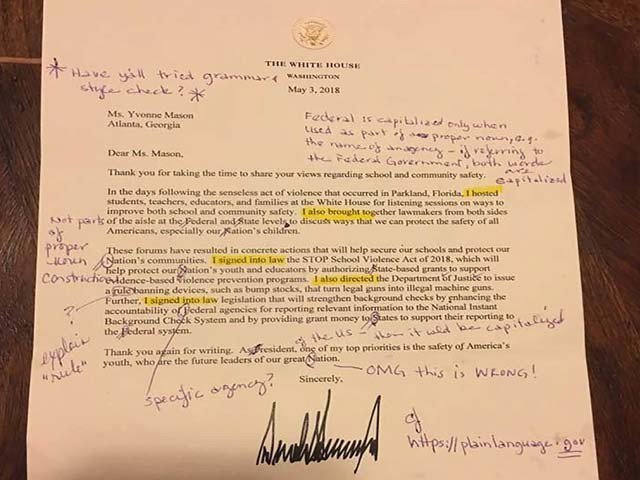 THE WHITE HOUSE
WASHINGTON
* Have y'all tried grammar &
style check? *
May 3, 2018
Ms. Yvonne Mason
Atlanta, Georgia
Federal is capitalized only when
used as part of a proper noun, e.g.
the name of an agency - if referring to
the Federal Government, both words
are
capitalized
Dear Ms. Mason,
Thank you for taking the time to share your views regarding school and community safety.
In the days following the senseless act of violence that occurred in Parkland, Florida, I hosted
students, teachers, educators, and families at the White House for listening sessions on ways to
improve both school and community safety. I also brought together lawmakers from both sides
of the aisle at the Federal and State levels to discuss ways that we can protect the safety of all
Americans, especially our Nation's children.
Not part
of
proper
noun
construction
These forums have resulted in concrete actions that will help secure our schools and protect our
Nation's communities. I signed into law the STOP School Violence Act of 2018, which will
help protect our Nation's youth and educators by authorizing State-based grants to support
evidence-based violence prevention programs. I also directed the Department of Justice to issue
a rule banning devices, such as bump stocks, that turn legal guns into illegal machine guns.
Further, I signed into law legislation that will strengthen background checks by enhancing the
accountability of Federal agencies for reporting relevant information to the National Instant
Background Check System and by providing grant money to States to support their reporting to
the Federal system.
?
explain
"rule"
of the US - then it would be capitalized
Thank you again for writing. As President, one of my top priorities is the safety of America's
youth, who are the future leaders of our great Nation.
OMG this is WRONG!
specific agency?
Sincerely,
cf
https://plainlanguage.gov